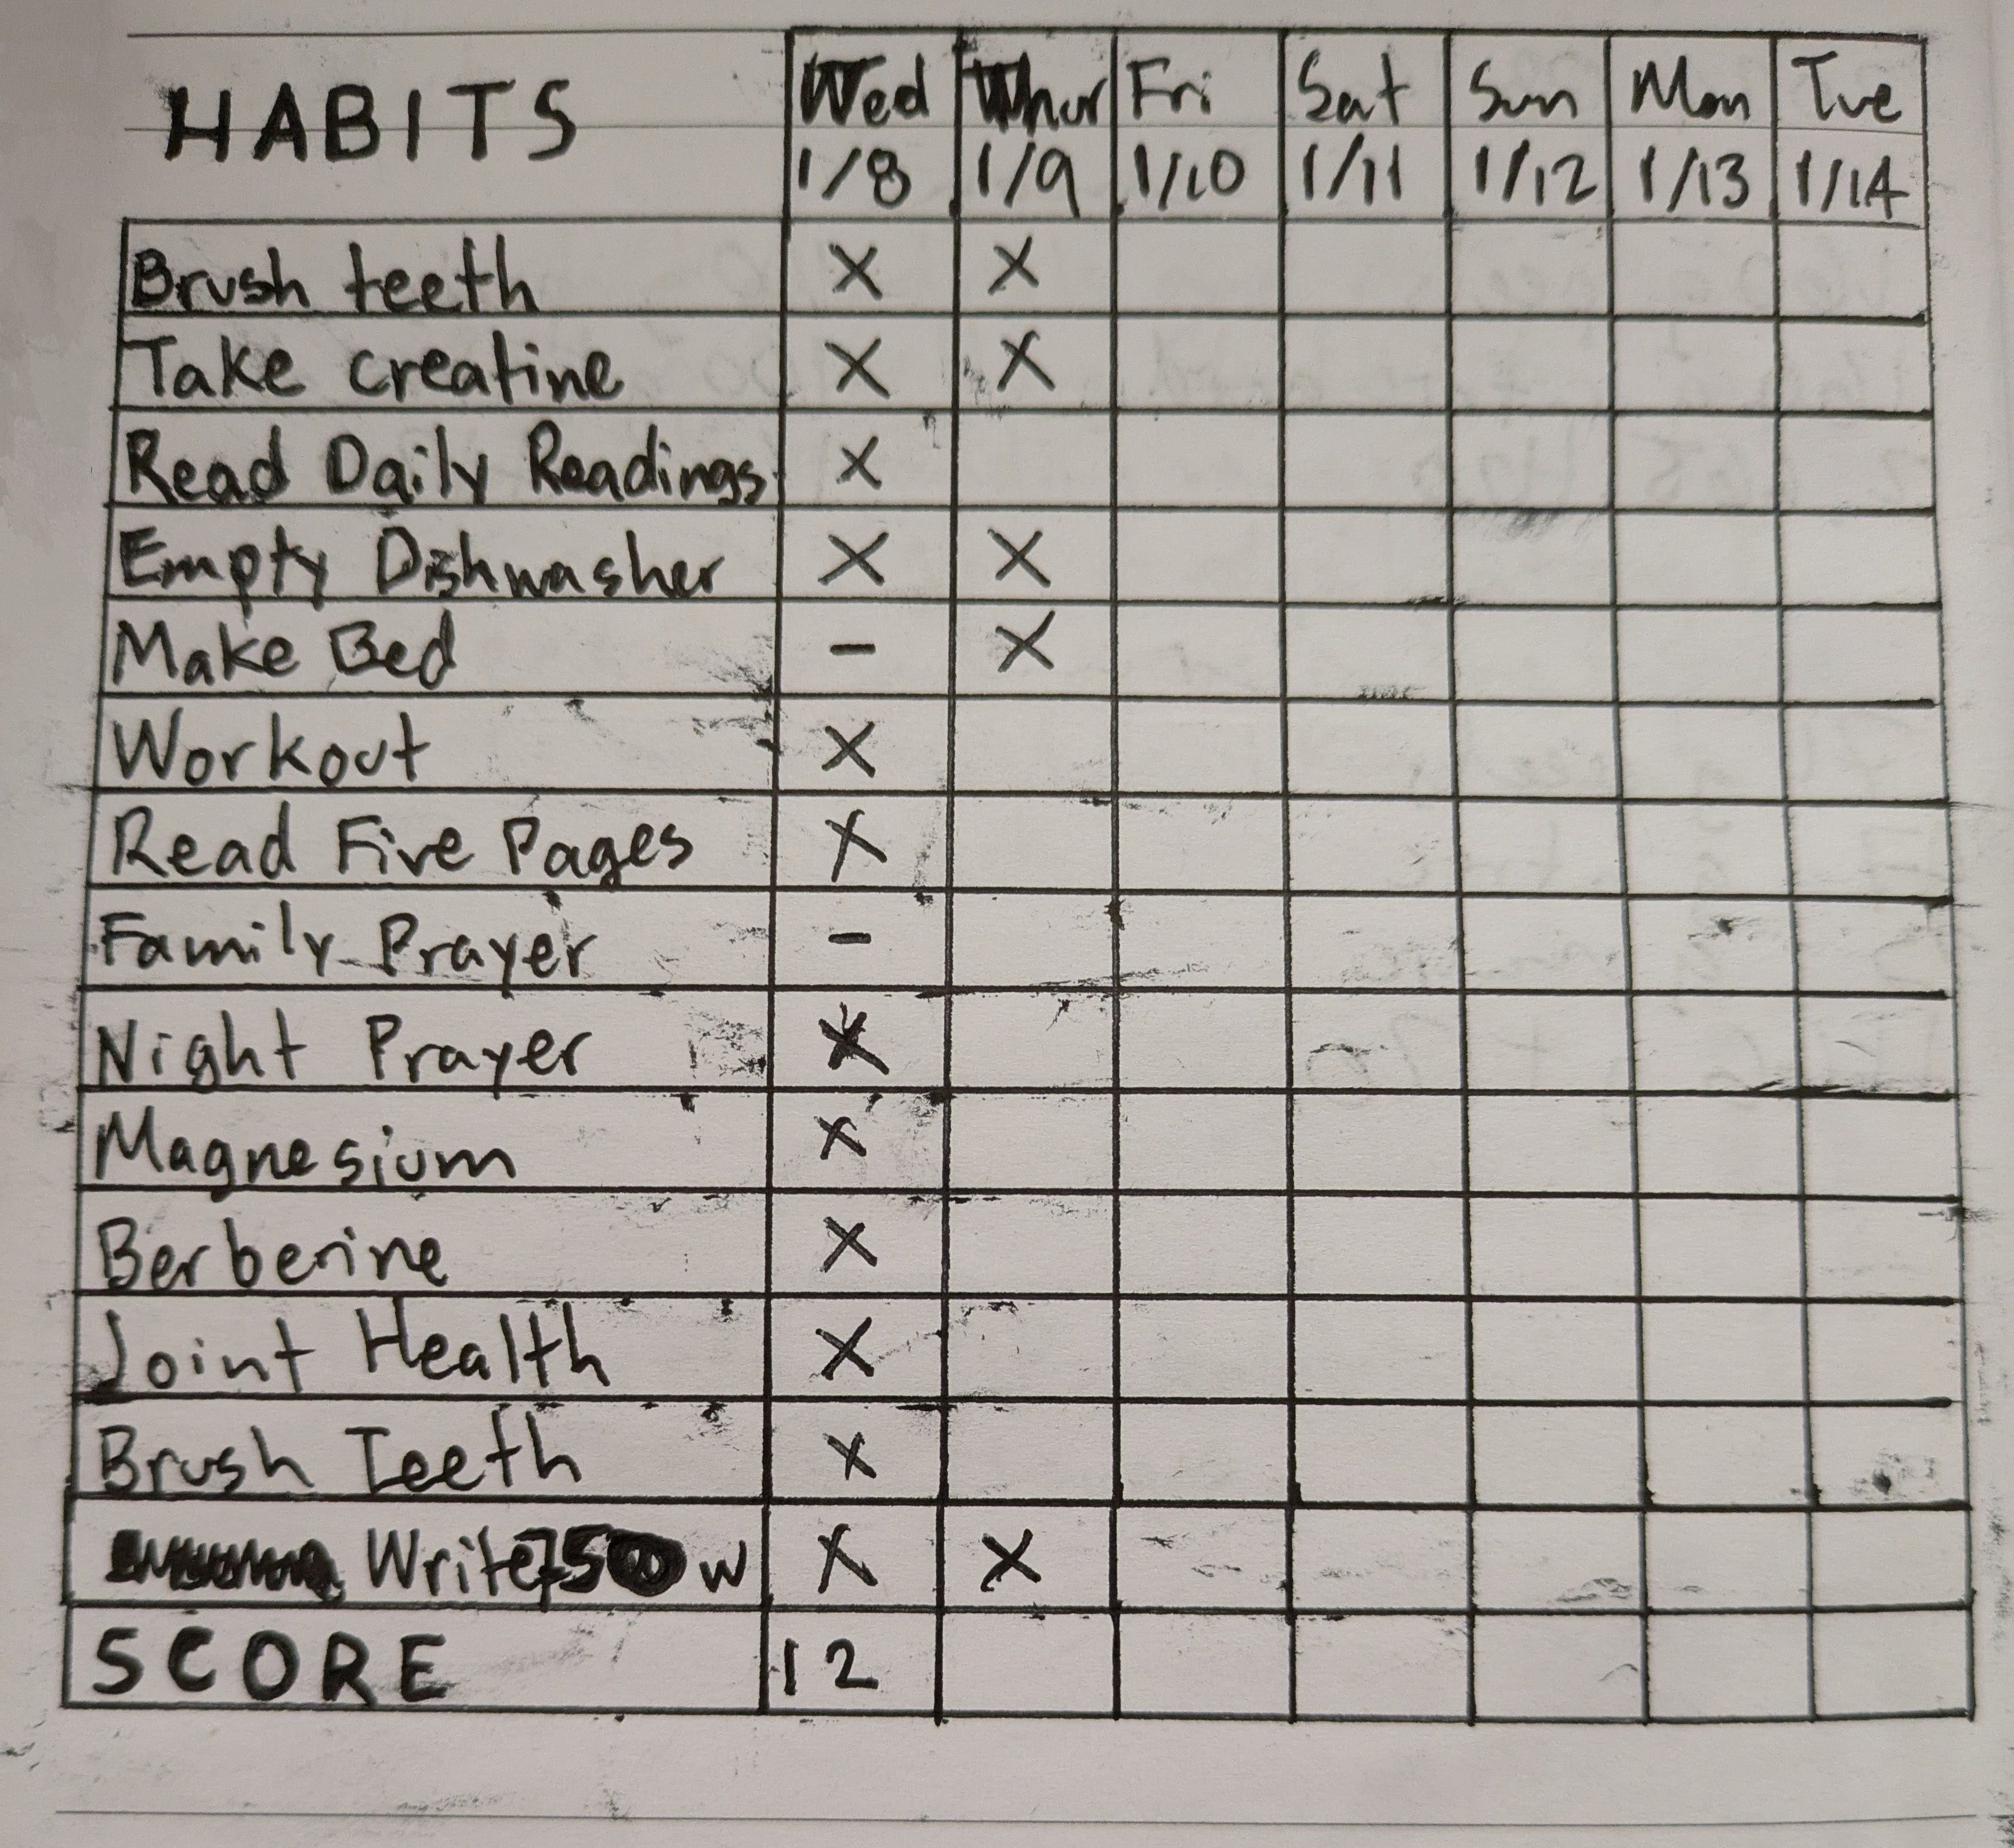 HABITS Wed Thur Fri Sat Sun Mon Tue
1/8 1/9 1/10 1/11 1/12 1/13 1/14
Brush teeth X X
Take creatine X X
Read Daily Readings X
Empty Dishwasher X X
Make Bed - X
Workout X
Read Five Pages X
Family Prayer -
Night Prayer X
Magnesium X
Berberine X
Joint Health X
Brush Teeth X
Write 750 w X X
SCORE 12